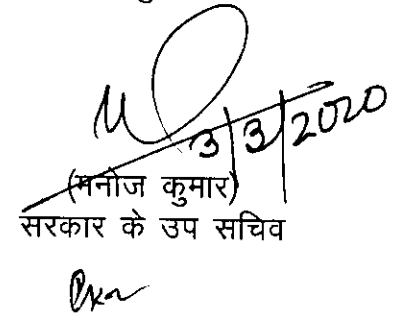 3/3/2020
(मनोज कुमार)
सरकार के उप सचिव